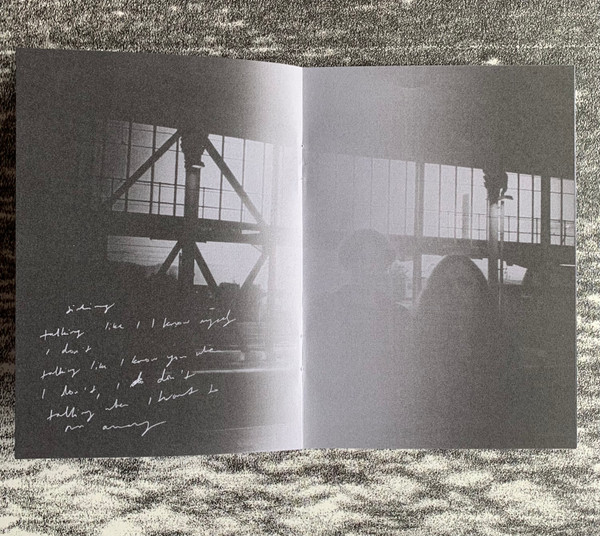 talking like I I know myself
I don't
talking like I know you
I don't, I do don't
talking when I want to
run away